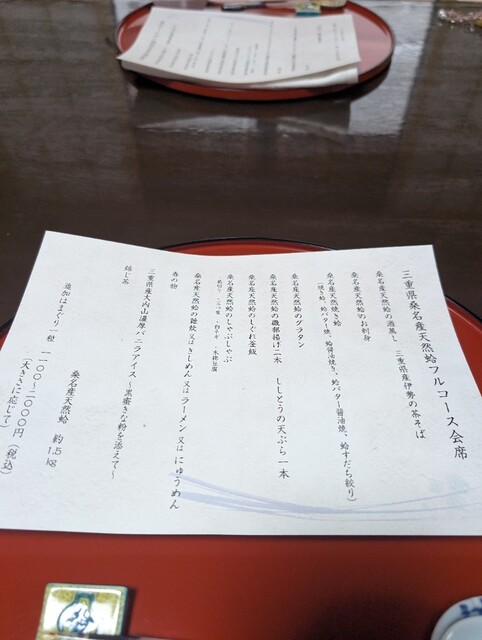 三重県桑名産天然蛤フルコース会席
三重県産伊勢の茶そば
桑名産天然蛤の酒蒸し
桑名産天然蛤のお刺身
桑名産天然焼き蛤
(焼き蛤、蛤バター焼、蛤醤油焼き、蛤バター醤油焼、蛤すだち絞り)
桑名産天然蛤のグラタン
桑名産天然蛤の磯部揚げ二本 ししとうの天ぷら一本
桑名産天然蛤のしぐれ釜飯
桑名産天然蛤のしゃぶしゃぶ
桑名産天然蛤の雑炊又はきしめん又はラーメン又はにゅうめん
香の物
三重県産大内山濃厚バニラアイス 〜黒蜜きな粉を添えて〜
焙じ茶
桑名産天然蛤 約1.5kg
追加はまぐり一粒 一一〇〇〜二〇〇〇円(税込)
(大きさに応じて)